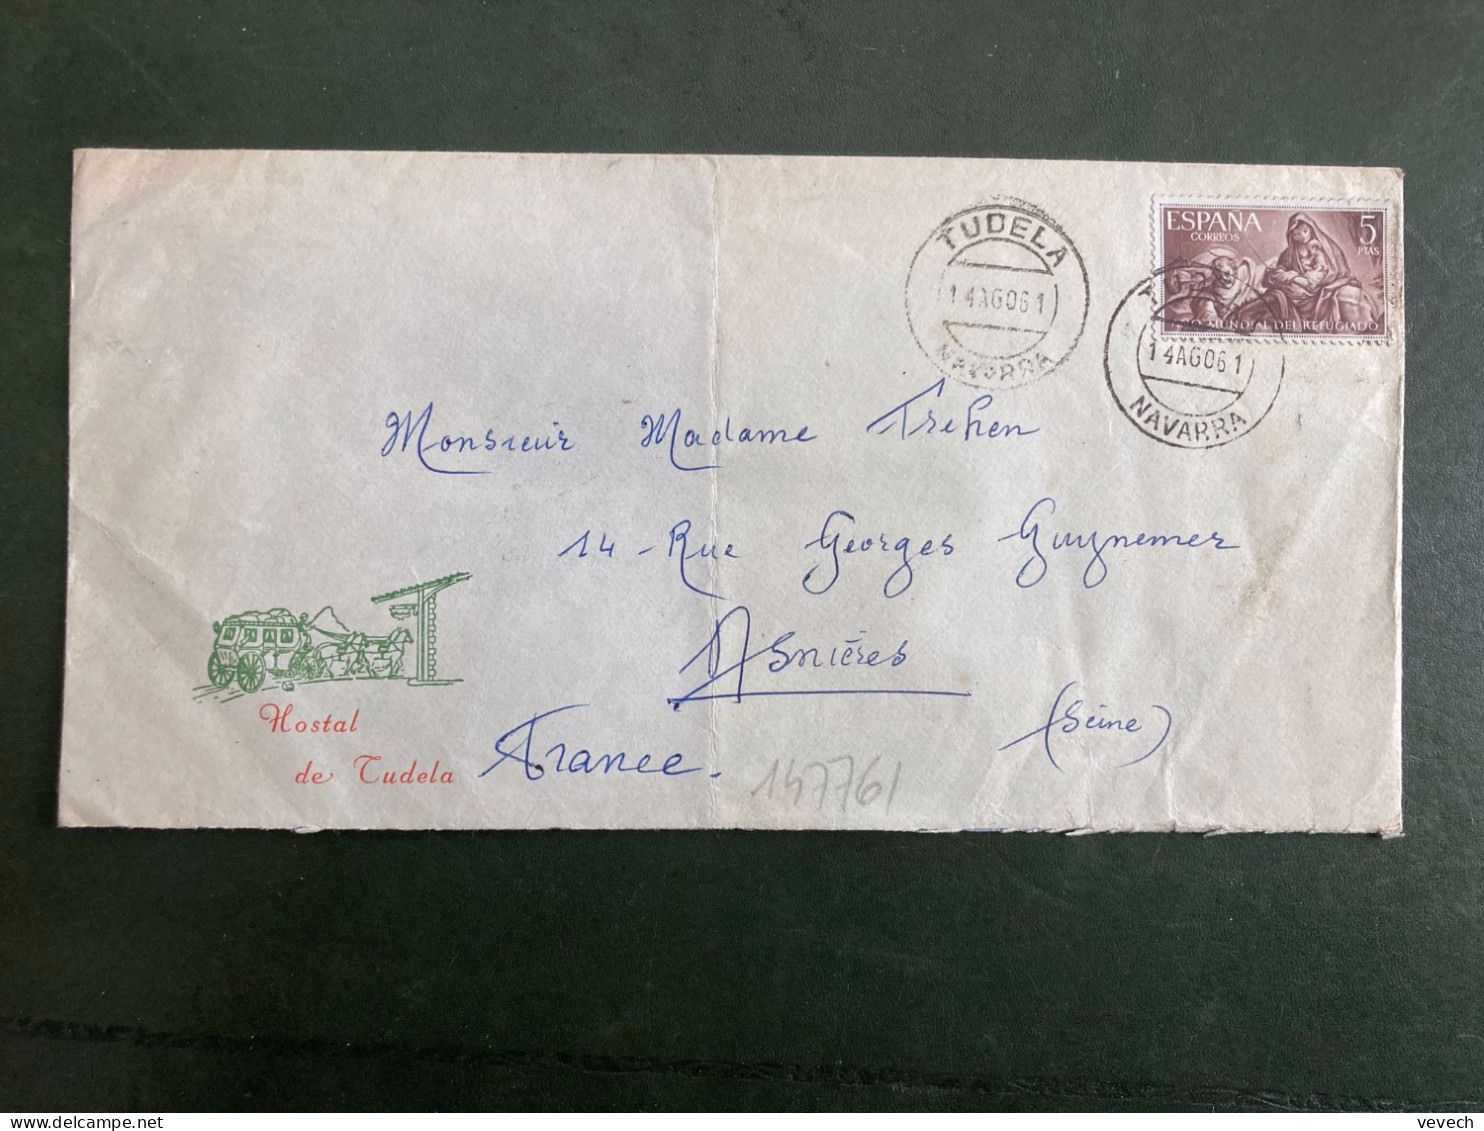 ESPAÑA 5
CORREOS PTAS
MUNDIAL DEL REFUGIADO
TUDELA
14AGO61
NAVARRA
14AGO61
NAVARRA
Monsieur Madame Trehen
14 - Rue Georges Guynemer
Asnières
(Seine)
France.
Hostal
de Tudela
147761
vevech